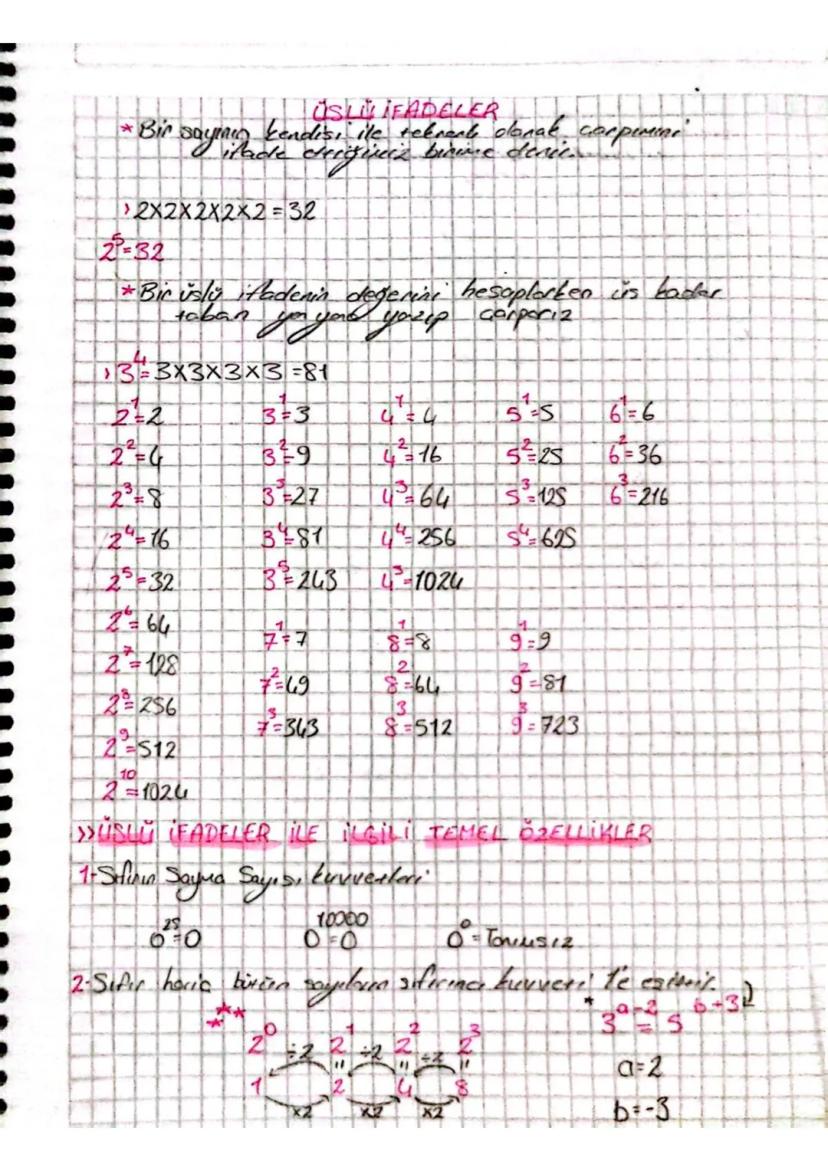 ÜSLÜ İFADELER
* Bir sayının kendisi ile tekrarlı olarak çarpımını
ifade ettiğimiz birime denir.
› 2x2x2x2x2 = 32
2⁵=32
* Bir üslü ifadenin değerini hesaplarken üs kadar
taban yan yana yazıp çarparız
› 3⁴=3x3x3x3=81
2¹=2 3¹=3 4¹=4 5¹=5 6¹=6
2²=4 3²=9 4²=16 5²=25 6²=36
2³=8 3³=27 4³=64 5³=125 6³=216
2⁴=16 3⁴=81 4⁴=256 5⁴=625
2⁵=32 3⁵=243 4⁵=1024
2⁶=64
7¹=7 8¹=8 9¹=9
2⁷=128
7²=49 8²=64 9²=81
2⁸=256
7³=343 8³=512 9³=723
2⁹=512
2¹⁰=1024
>> ÜSLÜ İFADELER İLE İLGİLİ TEMEL ÖZELLİKLER
1-Sıfırın Sayma Sayısı kuvvetleri
0²⁵=0 0¹⁰⁰⁰⁰=0 0⁰=Tanımsız
2-Sıfır hariç bütün sayıların sıfırıncı kuvveti 1'e eşittir.
*** * 3ᵃ⁻² = 5ᵇ⁺³
2⁰ 2¹ 2² 2³
÷2 ÷2 ÷2
= = =
a=2
1 2 4 8
x2 x2 x2
b=-3